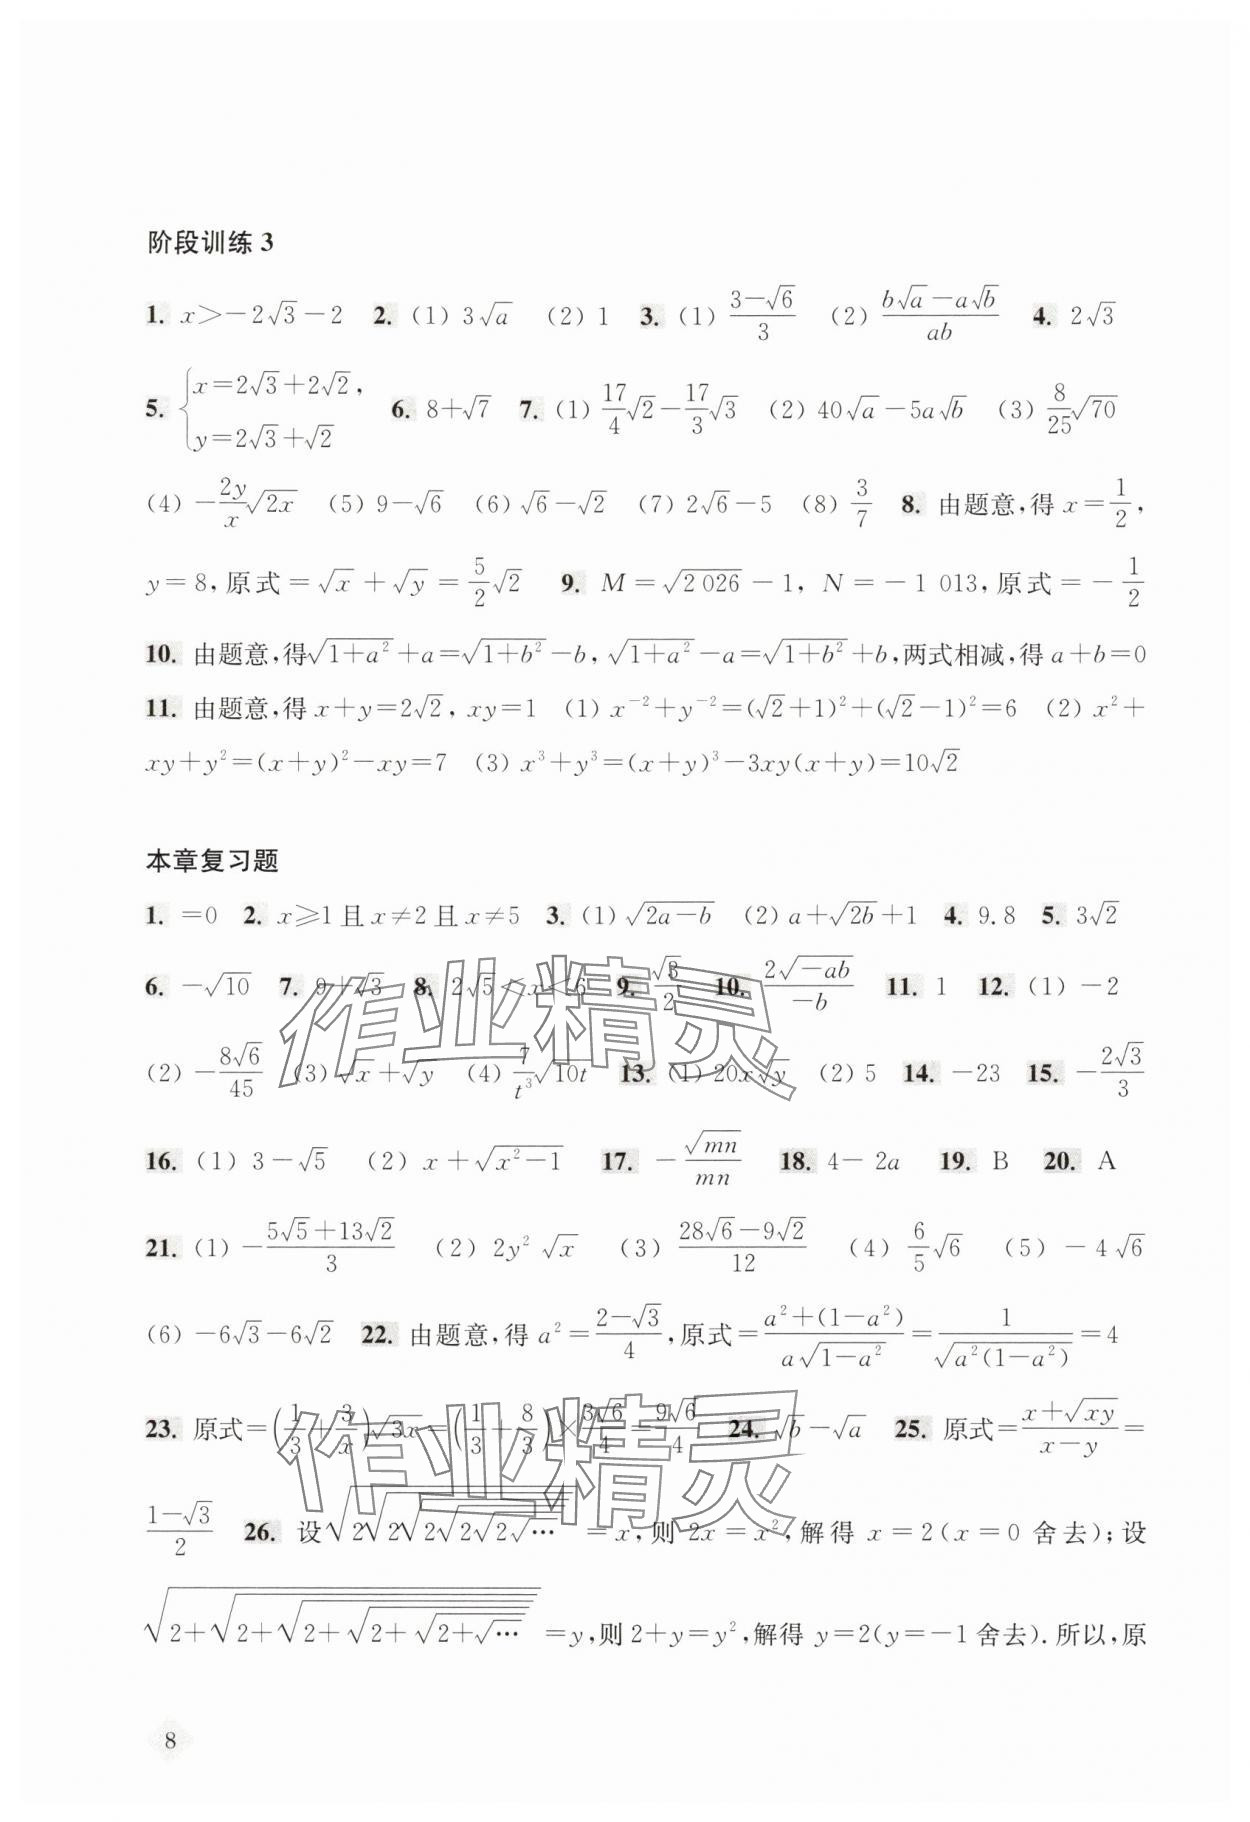 阶段训练 3
1. x>-2√3-2 2. (1) 3√a (2) 1 3. (1) (3-√6)/3 (2) (b√a-a√b)/(ab) 4. 2√3
5. {x=2√3+2√2, y=2√3+√2 6. 8+√7 7. (1) (17/4)√2-(17/3)√3 (2) 40√a-5a√b (3) (8/25)√70
(4) -(2y/x)√(2x) (5) 9-√6 (6) √6-√2 (7) 2√6-5 (8) 3/7 8. 由题意,得 x=1/2,
y=8,原式=√x+√y=(5/2)√2 9. M=√(2 026)-1, N=-1 013,原式=-1/2
10. 由题意,得√(1+a²)+a=√(1+b²)-b,√(1+a²)-a=√(1+b²)+b,两式相减,得 a+b=0
11. 由题意,得 x+y=2√2, xy=1 (1) x⁻²+y⁻²=(√2+1)²+(√2-1)²=6 (2) x²+
xy+y²=(x+y)²-xy=7 (3) x³+y³=(x+y)³-3xy(x+y)=10√2
本章复习题
1. =0 2. x≥1 且 x≠2 且 x≠5 3. (1) √(2a-b) (2) a+√(2b)+1 4. 9.8 5. 3√2
6. -√10 7. 9+√3 8. 2√5<x<√6 9. √3/2 10. 2√(-ab)/(-b) 11. 1 12. (1) -2
(2) -8√6/45 (3) √x+√y (4) (7/t³)√(10t) 13. (1) 20x√y (2) 5 14. -23 15. -2√3/3
16. (1) 3-√5 (2) x+√(x²-1) 17. -√(mn)/(mn) 18. 4-2a 19. B 20. A
21. (1) -(5√5+13√2)/3 (2) 2y²√x (3) (28√6-9√2)/12 (4) (6/5)√6 (5) -4√6
(6) -6√3-6√2 22. 由题意,得 a²=(2-√3)/4,原式=(a²+(1-a²))/(a√(1-a²))=1/√(a²(1-a²))=4
23. 原式=(1/3+3/x)√(3x)=(1/3+8/3)×3√6/4=9√6/4 24. √b-√a 25. 原式=(x+√(xy))/(x-y)=
(1-√3)/2 26. 设√(2√(2√(2√(2√(2√…)))))=x,则 2x=x²,解得 x=2(x=0 舍去);设
√(2+√(2+√(2+√(2+√(2+√…)))))=y,则2+y=y²,解得 y=2(y=-1舍去).所以,原
作业精灵
作业精灵
8